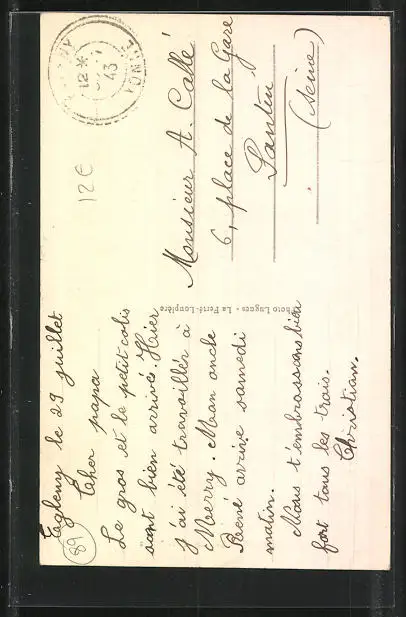 Egleny le 29 juillet
Cher papa
Le gros et le petit colis
sont bien arrivé. Hier
J'ai été travaillér à
Merry. Mon oncle
René arrive samedi
matin.
Nous t'embrassons bien
fort tous les trois.
Christian.
89
Photo Lugues - La Ferté-Loupière
Monsieur A. Callé
6, place de la Gare
Pantin
(Seine)
12 €
12 *
43
YONNE